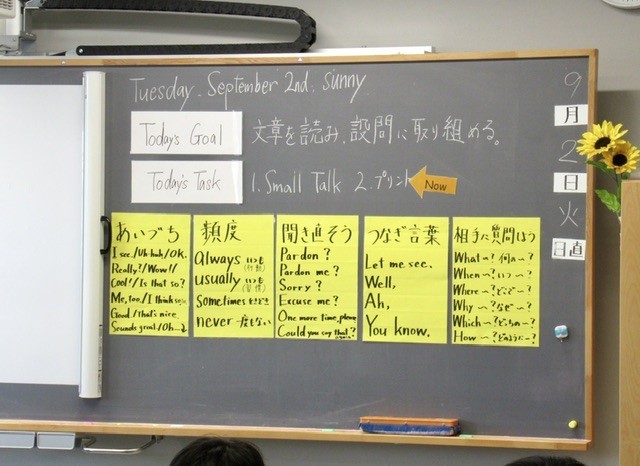 Tuesday. September 2nd. sunny
Today's Goal
文章を読み、設問に取り組める。
Today's Task
1. Small Talk 2. プリント
Now
9
月
2
日
火
日直
あいづち
I see./Uh-huh./OK.
Really?/Wow!/
Cool!/Is that so?
Me, too./I think so
Good/that's nice
Sounds great/Oh…
頻度
Always いつも
usually いつも
Sometimes ときどき
never 一度もない
聞き直そう
Pardon?
Pardon me?
Sorry?
Excuse me?
One more time, please
Could you say that?
つなぎ言葉
Let me see.
Well,
Ah,
You know.
相手に質問しよう
What~? 何の~?
When~? いつ~?
Where~? どこで~?
Why~? なぜ~?
Which~? どっちの~?
How~? どのように~?